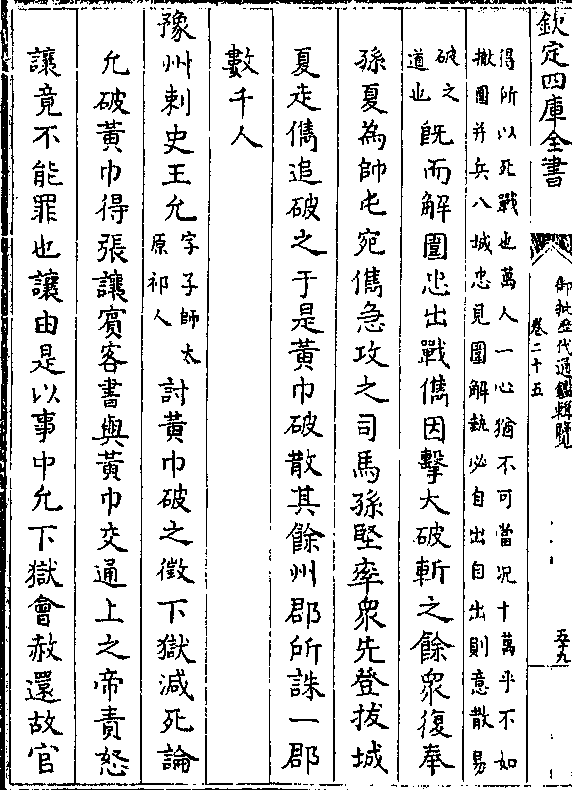 欽定四庫全書
御批歷代通鑑輯覽
卷二十五
五十九
得所以死戰也萬人一心猶不可當况十萬乎不如
撤圍并兵入城忠見圍解埶必自出自出則意散易
破之
道也
既而解圍忠出戰儁因擊大破斬之餘衆復奉
孫夏為帥屯宛儁急攻之司馬孫堅率衆先登拔城
夏走儁追破之于是黃巾破散其餘州郡所誅一郡
數千人
豫州刺史王允
字子師太
原祁人
討黃巾破之徵下獄減死論
允破黃巾得張讓賓客書與黃巾交通上之帝責怒
讓竟不能罪也讓由是以事中允下獄會赦還故官